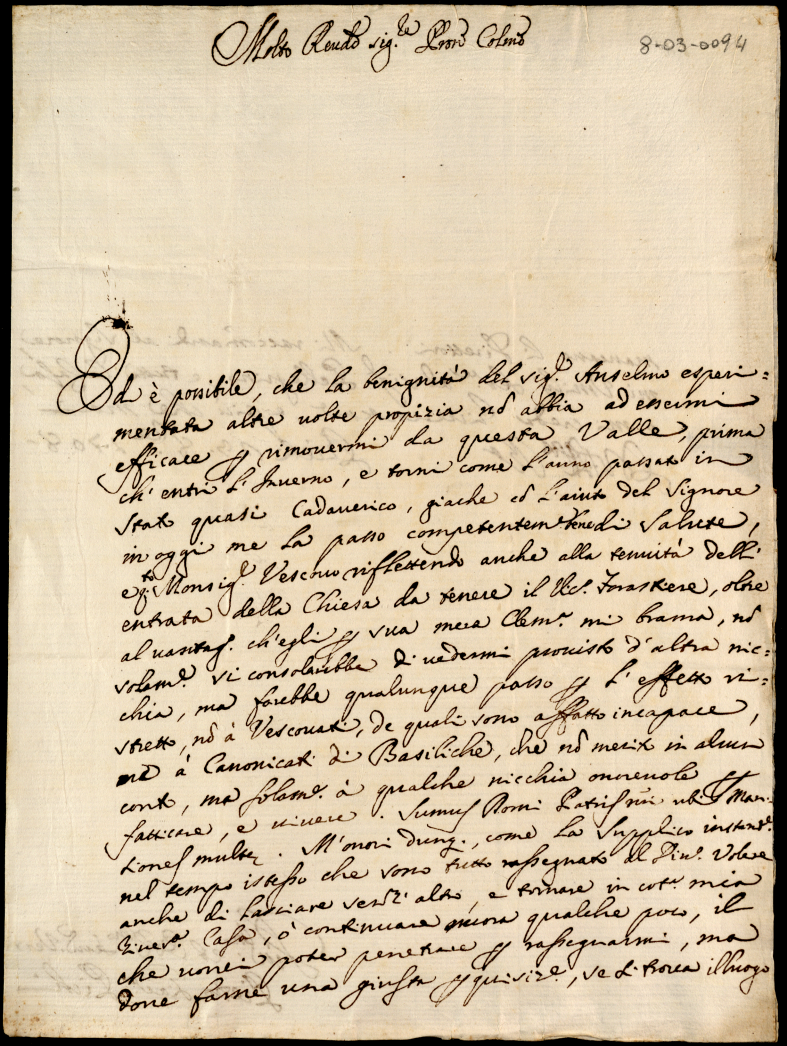 Molto Revdo sig.re Pron Colmo
8-03-0094
Ed è possibile, che la benignità del sig.r Anselmo esperi=
mentata altre uolte propizia nō abbia ad essermi
efficace p rimouermi da questa Valle, prima
ch'entri l'Inuerno, e torni come l'anno passato in
stato quasi Cadauerico, giache cō l'aiuto del Signore
in oggi me la passo competentem.te di salute,
e Monsig.r Vescouo riflettendo anche alla tenuità dell'
entrata della Chiesa da tenere il Vic.o forastiere, oltre
al uantag.o ch'egli p sua mera Clem.a mi brama, nō
solam.e si consolarebbe di uedermi prouisto d'altra nic=
chia, ma farebbe qualunque passo p l'effetto ri=
stretto, nō à Vescouati, de quali sono affatto incapace,
nè à Canonicati di Basiliche, che nō merito in alcun
conto, ma solam.e à qualche nicchia onoreuole p
fatticare, e uiuere. Sumus Romi Patris mei ubi Man=
siones multe. M'onori dunq., come la supplico instant.e
nel tempo istesso che sono tutto rassegnato al Diu.o Volere
anche di lasciare senz'altro, e tornare in cot.a mia
riuer.a Casa, ò continuare ancora qualche poco, il
che uorrei poter penetrare p rassegnarmi, ma
doue farne una giusta pquisiz.e, se di troua il luogo